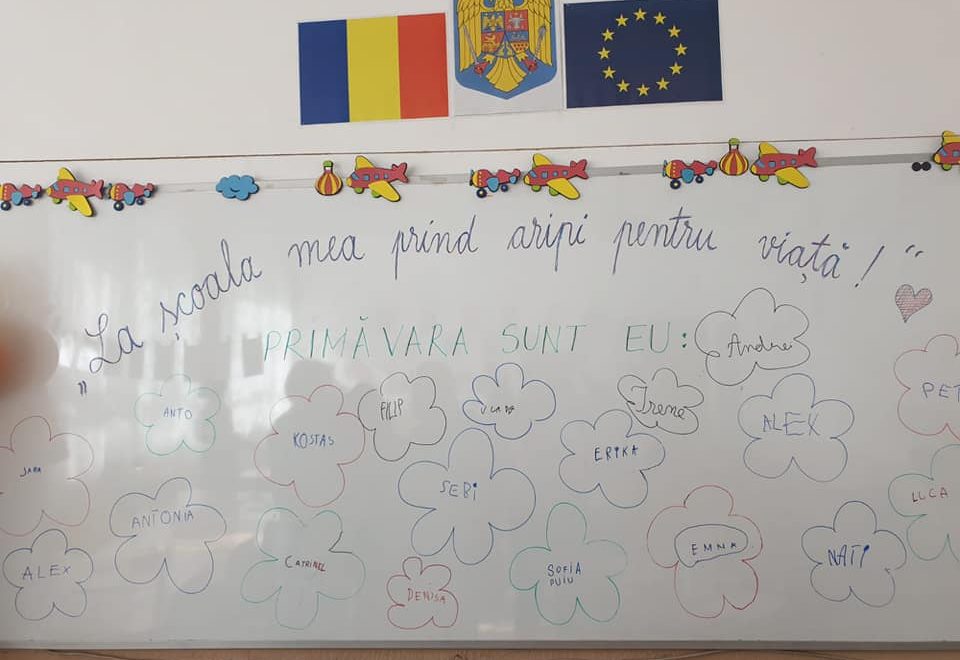 „La școala mea prind aripi pentru viață!”
PRIMĂVARA SUNT EU:
Andrei
ANTO
KOSTAS
FILIP
Irene
ALEX
PET
JARA
ANTONIA
SEBI
ERIKA
LUCA
ALEX
DENISA
SOFIA
PUIU
EMMA
NATI